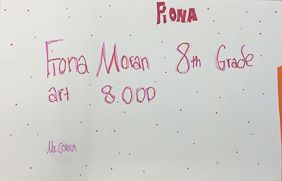 FIONA
Fiona Moran 8th Grade
art 8.000